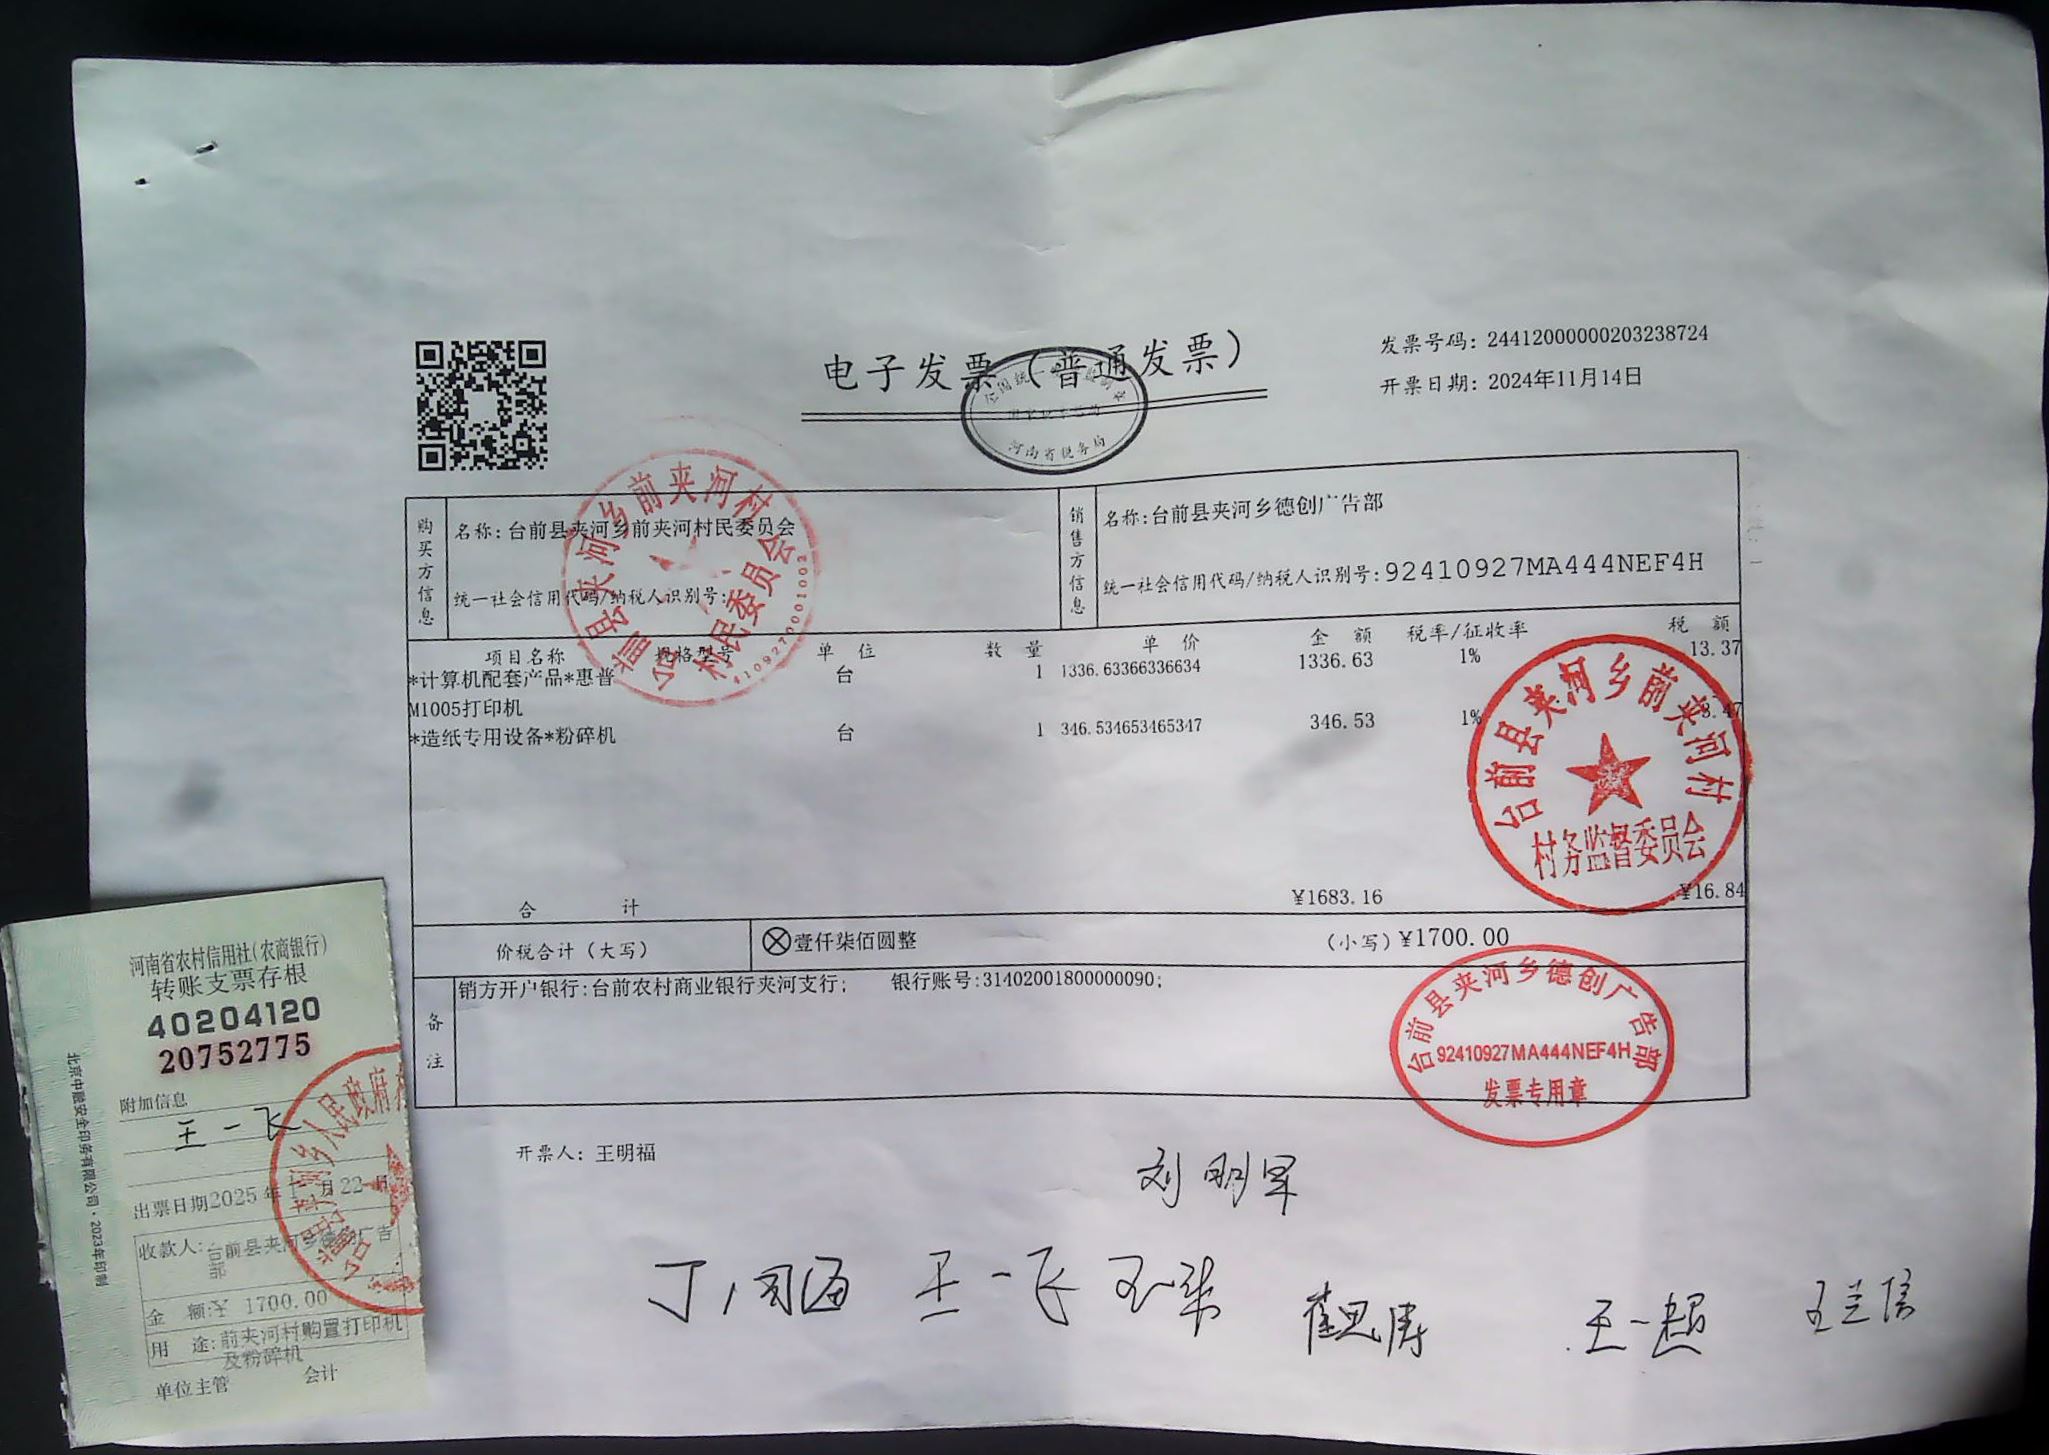 电子发票（普通发票）
发票号码：24412000000203238724
开票日期：2024年11月14日
河南省税务局
购买方信息
名称：台前县夹河乡前夹河村民委员会
统一社会信用代码/纳税人识别号：
销售方信息
名称：台前县夹河乡德创广告部
统一社会信用代码/纳税人识别号：92410927MA444NEF4H
项目名称 规格型号 单位 数量 单价 金额 税率/征收率 税额
*计算机配套产品*惠普 台 1 1336.63366336634 1336.63 1% 13.37
M1005打印机
*造纸专用设备*粉碎机 台 1 346.534653465347 346.53 1% 3.47
合计 ¥1683.16 ¥16.84
价税合计（大写） ⊗壹仟柒佰圆整 （小写）¥1700.00
备注
销方开户银行：台前农村商业银行夹河支行； 银行账号：31402001800000090；
开票人：王明福
台前县夹河乡前夹河村
村民委员会
4109270001002
台前县夹河乡前夹河村
村务监督委员会
台前县夹河乡德创广告部
92410927MA444NEF4H
发票专用章
王一飞
王一超
王兰信
河南省农村信用社（农商银行）
转账支票存根
40204120
20752775
附加信息
王一飞
出票日期2025年1月22日
收款人：台前县夹河乡德创广告部
金额：1700.00
用途：前夹河村购置打印机
及粉碎机
单位主管 会计
北京中融安全印务有限公司·2023年印制